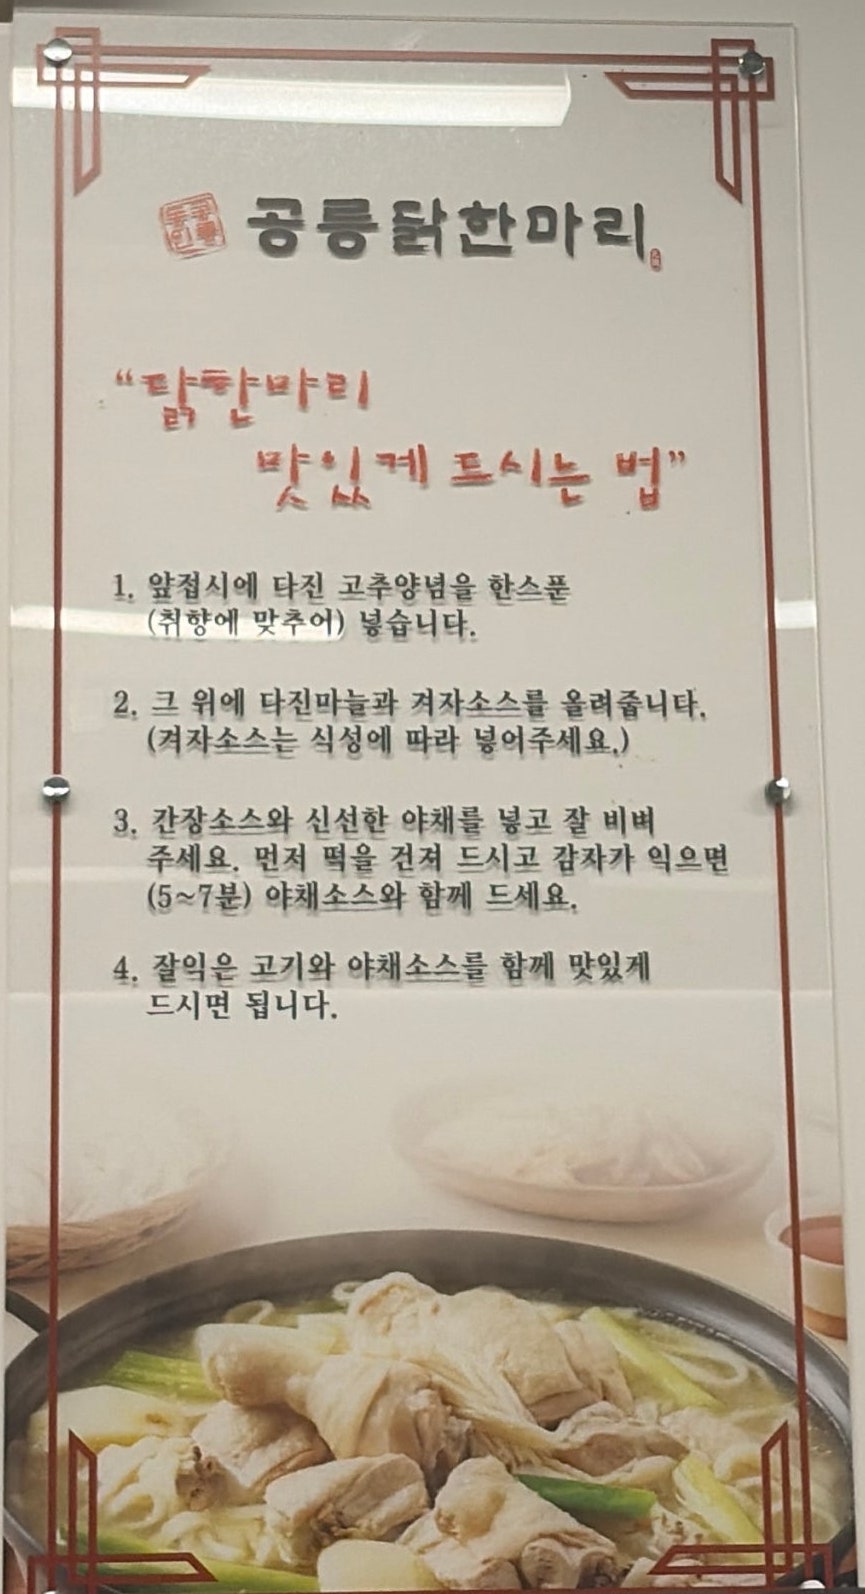 공릉닭한마리
“닭한마리
맛있게 드시는 법”
1. 앞접시에 다진 고추양념을 한스푼
(취향에 맞추어) 넣습니다.
2. 그 위에 다진마늘과 겨자소스를 올려줍니다.
(겨자소스는 식성에 따라 넣어주세요.)
3. 간장소스와 신선한 야채를 넣고 잘 비벼
주세요. 먼저 떡을 건져 드시고 감자가 익으면
(5~7분) 야채소스와 함께 드세요.
4. 잘익은 고기와 야채소스를 함께 맛있게
드시면 됩니다.